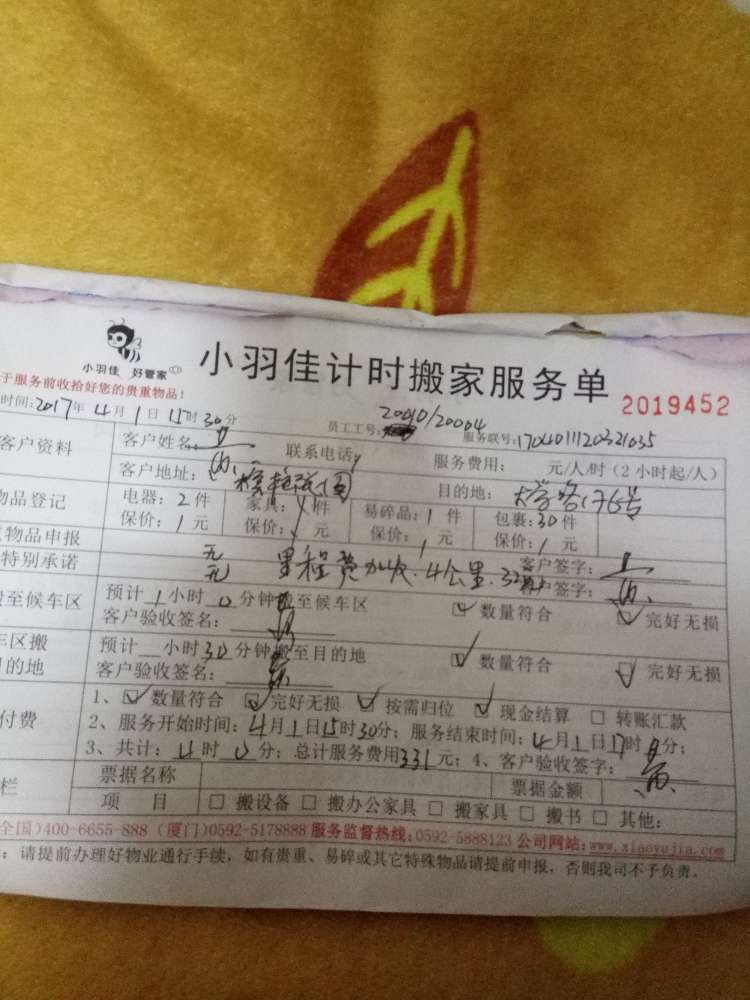 小羽佳 好管家
小羽佳计时搬家服务单
2019452
于服务前收拾好您的贵重物品！
时间：2017年4月1日15时30分
员工工号： 20010/20004
服务联号：
客户资料
客户姓名
联系电话
服务费用： 元/人/时（2小时起/人）
客户地址：
目的地： 大学路176号
物品登记
电器：2件
家具：1件
易碎品：1件
包裹：30件
保价：1元
保价：1元
保价：1元
保价：1元
物品申报
无
客户签字：
特别承诺
无
里程费加收.4公里.32元
客户签字：
搬至候车区
预计1小时0分钟搬至候车区
数量符合
完好无损
客户验收签名：
车区搬
目的地
预计 小时30分钟搬至目的地
数量符合
完好无损
客户验收签名：
付费
1、☑数量符合 ☑完好无损 ☑按需归位 ☑现金结算 □转账汇款
2、服务开始时间：4月1日15时30分；服务结束时间：4月1日17时 分；
3、共计：4时0分；总计服务费用331元；4、客户验收签字：
栏
票据名称
票据金额
项 目
□搬设备 □搬办公家具 □搬家具 □搬书 □其他：
全国)400-6655-888（厦门)0592-5178888 服务监督热线：0592-5888123 公司网站：www.xiaoyujia.com
：请提前办理好物业通行手续，如有贵重、易碎或其它特殊物品请提前申报，否则我司不予负责。